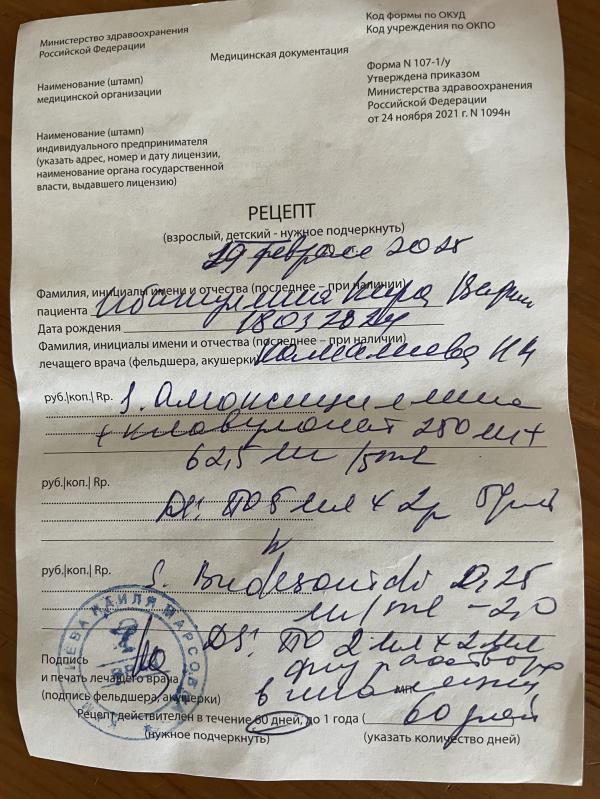 Министерство здравоохранения
Российской Федерации
Медицинская документация
Код формы по ОКУД
Код учреждения по ОКПО
Форма N 107-1/у
Утверждена приказом
Министерства здравоохранения
Российской Федерации
от 24 ноября 2021 г. N 1094н
Наименование (штамп)
медицинской организации
Наименование (штамп)
индивидуального предпринимателя
(указать адрес, номер и дату лицензии,
наименование органа государственной
власти, выдавшего лицензию)
РЕЦЕПТ
(взрослый, детский - нужное подчеркнуть)
февраля 2025
Фамилия, инициалы имени и отчества (последнее – при наличии)
пациента Кира
Дата рождения 18032024
Фамилия, инициалы имени и отчества (последнее – при наличии)
лечащего врача (фельдшера, акушерки)
руб.|коп.| Rp. S. Амоксициллина
+ клавуланат 250 мг+
62,5 мг /5ml
руб.|коп.| Rp.
DS: ПО 5 мл х 2р
руб.|коп.| Rp.
S. Budesonidi 0,25
мг/ml - 2,0
DS: ПО 2 мл х 2 мл
физ раствора
Подпись
и печать лечащего врача
(подпись фельдшера, акушерки)
МП
Рецепт действителен в течение 60 дней, до 1 года ( 60 дней
(нужное подчеркнуть)
(указать количество дней)